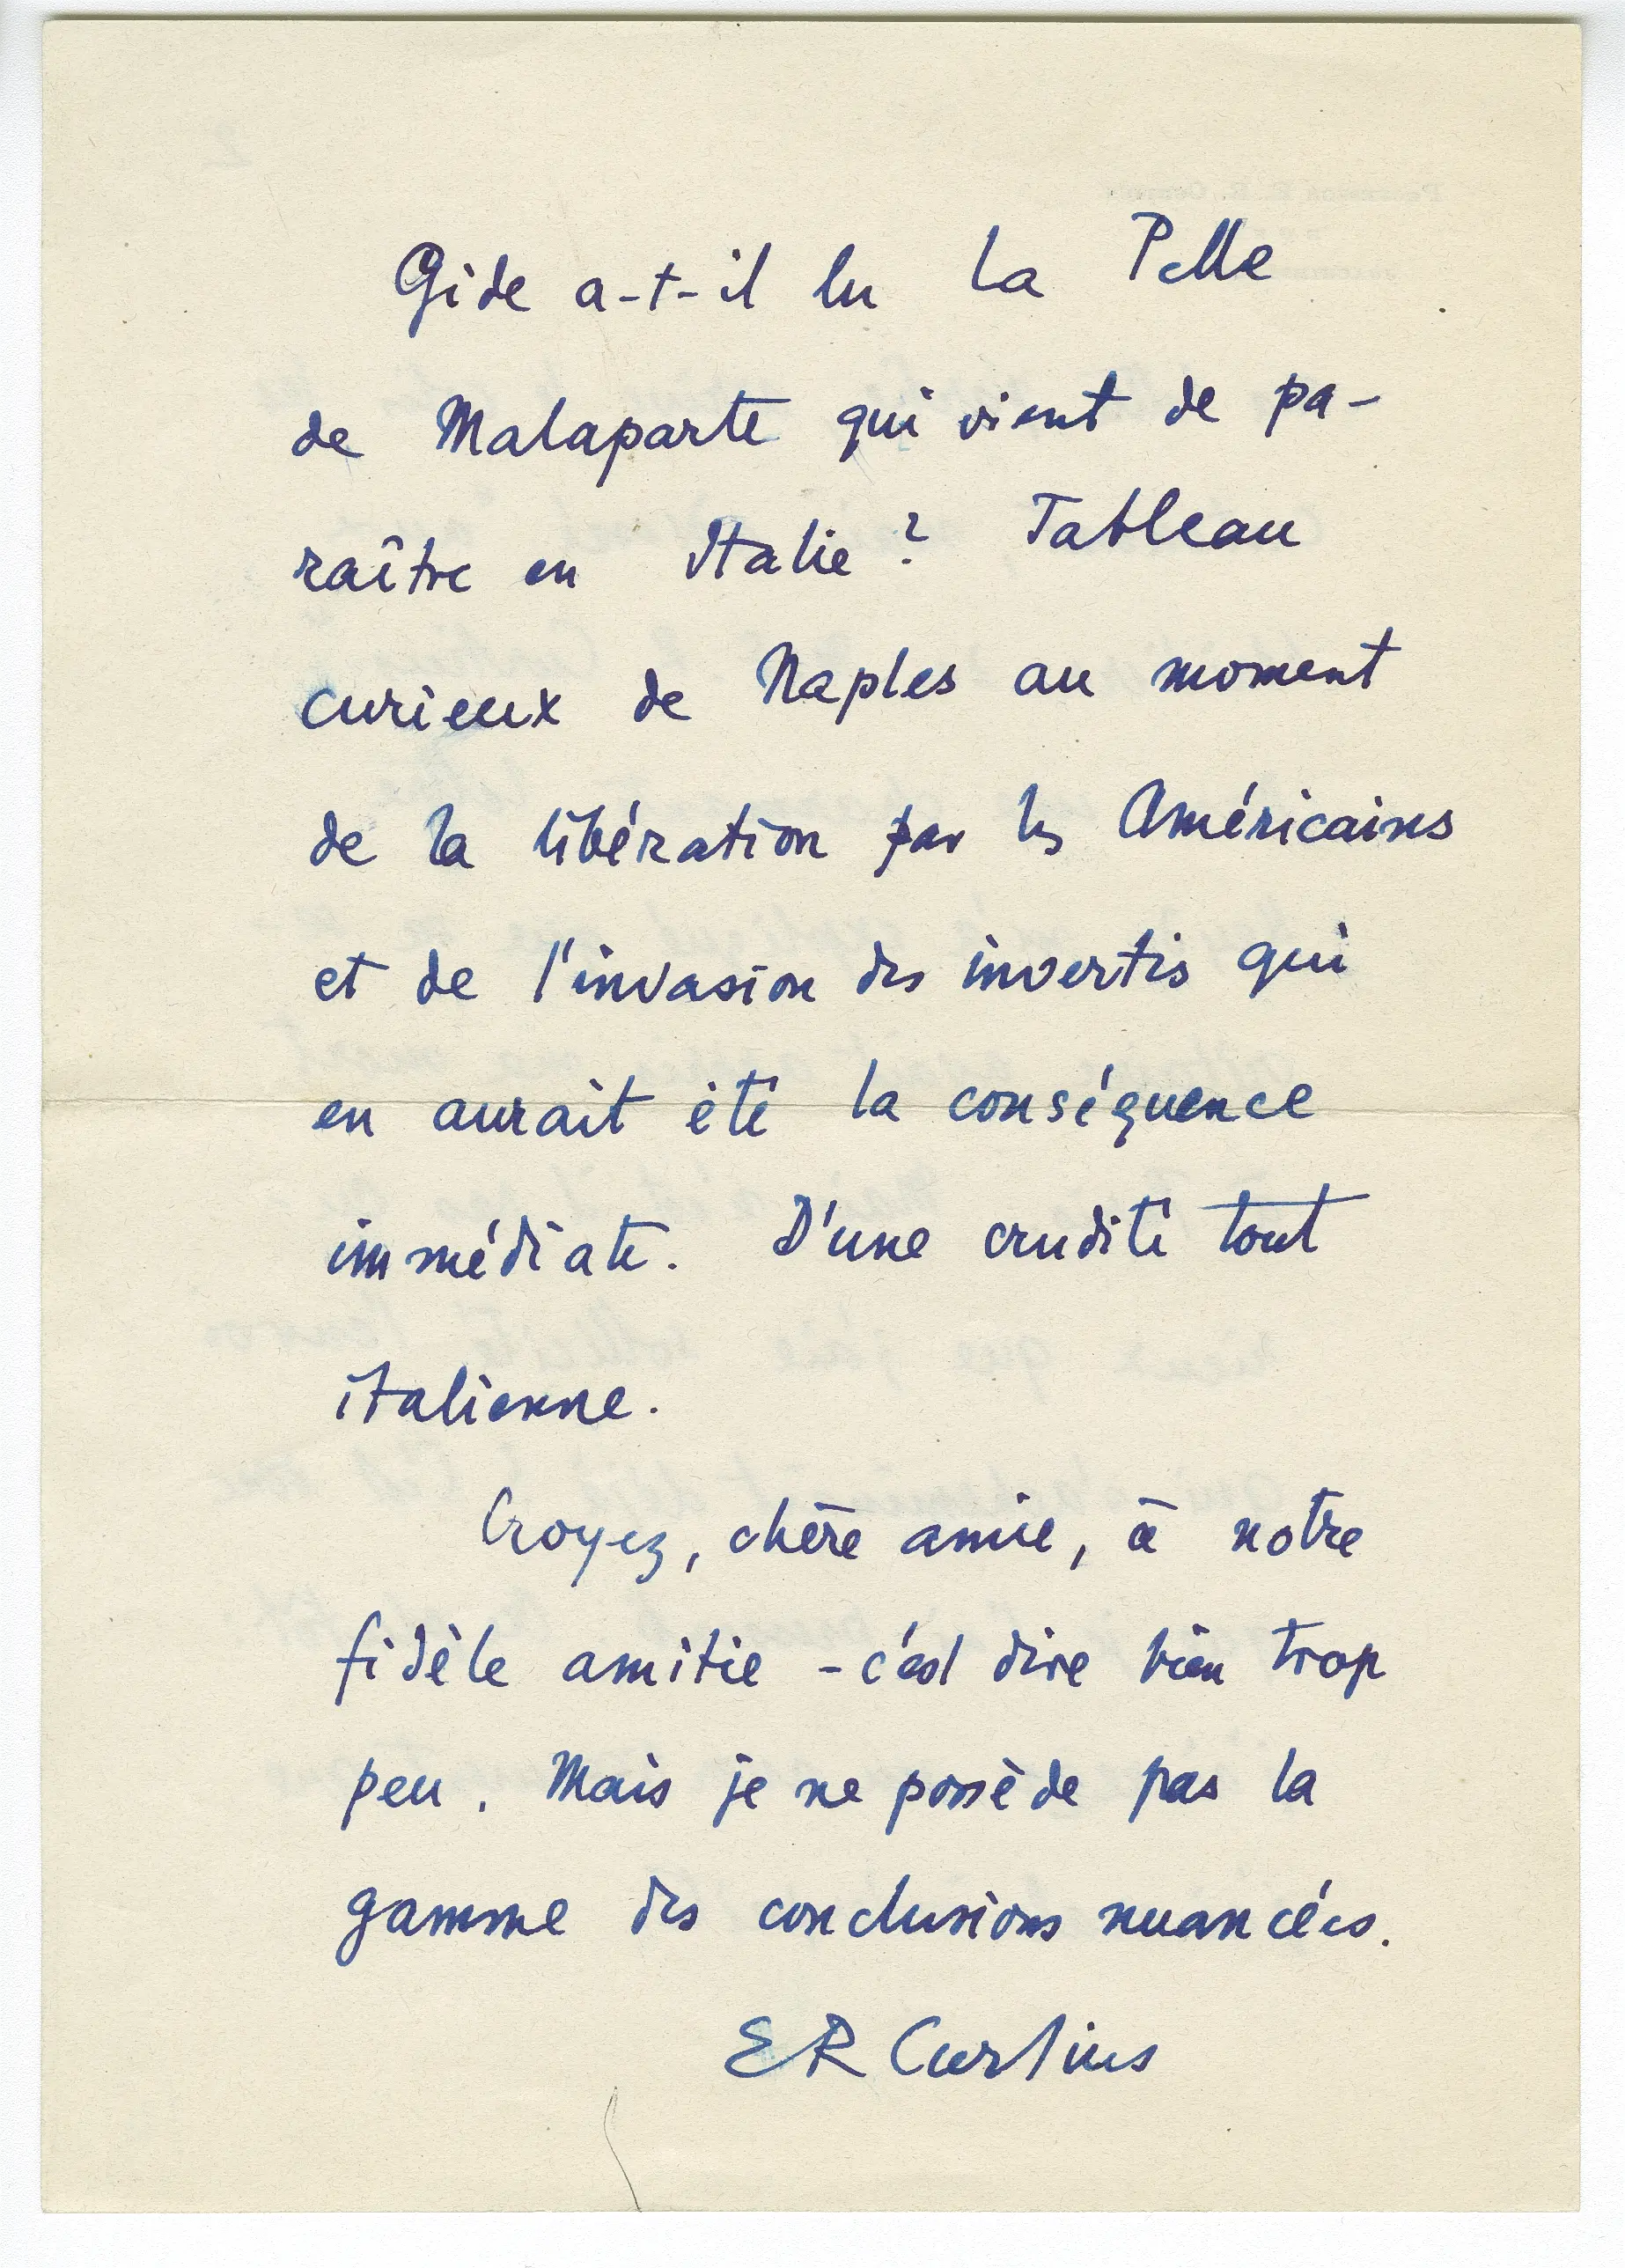 Gide a-t-il lu La Pelle
de Malaparte qui vient de pa-
raître en Italie? Tableau
curieux de Naples au moment
de la libération par les Américains
et de l'invasion des invertis qui
en aurait été la conséquence
immédiate. D'une crudité tout
italienne.
Croyez, chère amie, à notre
fidèle amitie - c'est dire bien trop
peu. Mais je ne possède pas la
gamme des conclusions nuancées.
ER Curtius